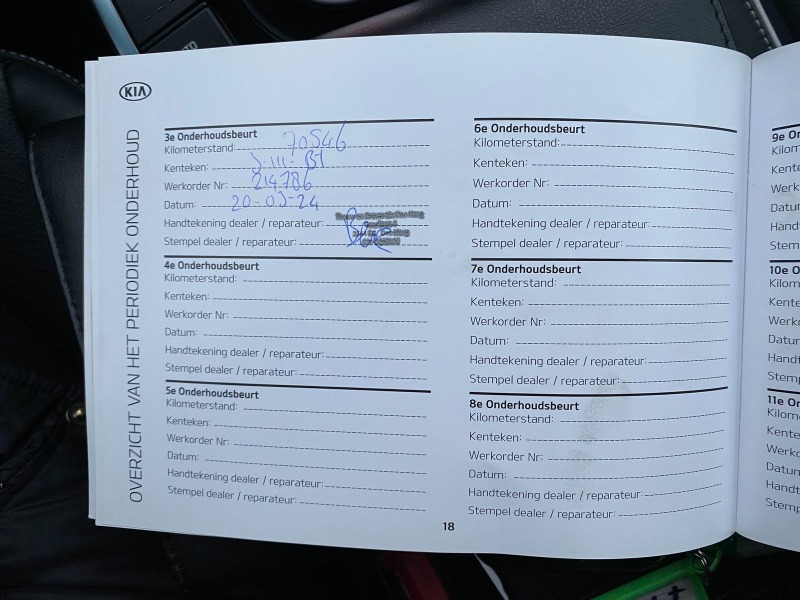 KIA
OVERZICHT VAN HET PERIODIEK ONDERHOUD
3e Onderhoudsbeurt
Kilometerstand: 70546
Kenteken:
Werkorder Nr: 214786
Datum: 20-03-24
Handtekening dealer / reparateur:
Stempel dealer / reparateur:
4e Onderhoudsbeurt
Kilometerstand:
Kenteken:
Werkorder Nr:
Datum:
Handtekening dealer / reparateur:
Stempel dealer / reparateur:
5e Onderhoudsbeurt
Kilometerstand:
Kenteken:
Werkorder Nr:
Datum:
Handtekening dealer / reparateur:
Stempel dealer / reparateur:
6e Onderhoudsbeurt
Kilometerstand:
Kenteken:
Werkorder Nr:
Datum:
Handtekening dealer / reparateur:
Stempel dealer / reparateur:
7e Onderhoudsbeurt
Kilometerstand:
Kenteken:
Werkorder Nr:
Datum:
Handtekening dealer / reparateur:
Stempel dealer / reparateur:
8e Onderhoudsbeurt
Kilometerstand:
Kenteken:
Werkorder Nr:
Datum:
Handtekening dealer / reparateur:
Stempel dealer / reparateur:
18
9e Onder
Kilom
Kente
Werko
Datur
Hand
Stemp
10e O
Kilom
Kente
Werko
Datum
Handt
Stemp
11e O
Kilom
Kente
Werko
Datum
Handt
Stemp